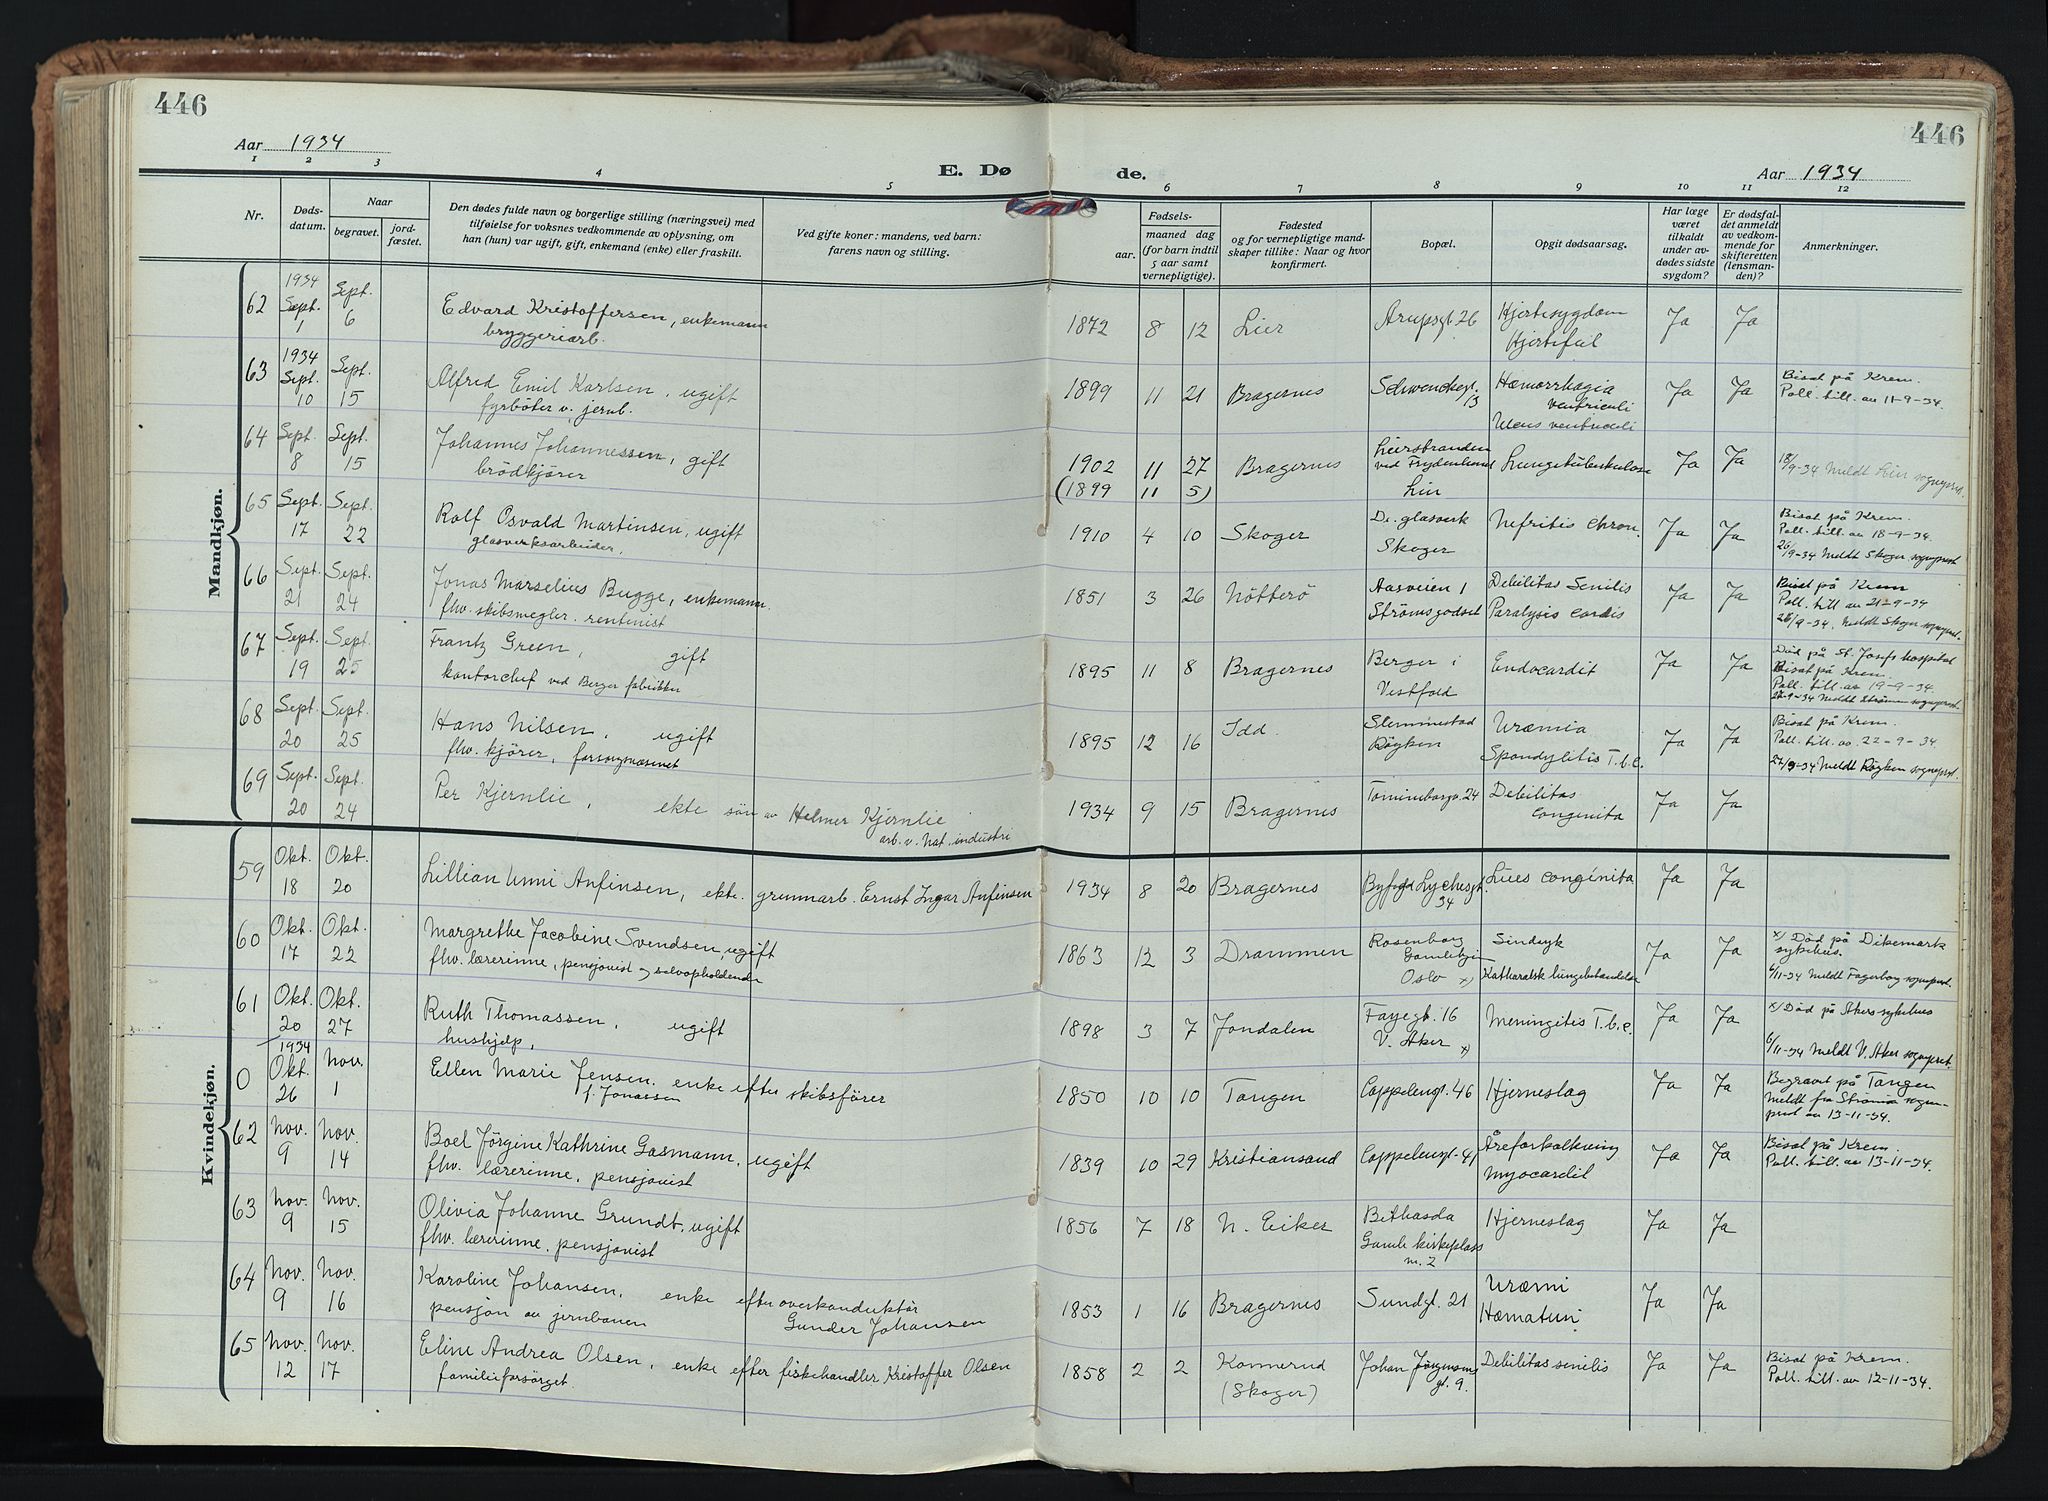 446
446
Aar 1934
E. Døde.
Aar 1934
1 2 3 4 5 6 7 8 9 10 11 12
Nr.
Døds-datum.
Naar
begravet.
jord-fæstet.
Den dødes fulde navn og borgerlige stilling (næringsvei) med
tilføielse for voksnes vedkommende av oplysning, om
han (hun) var ugift, gift, enkemand (enke) eller fraskilt.
Ved gifte koner: mandens, ved barn:
farens navn og stilling.
Fødsels-
aar.
maaned dag
(for barn indtil
5 aar samt
vernepligtige).
Fødested
og for vernepligtige mand-
skaper tillike: Naar og hvor
konfirmert.
Bopæl.
Opgit dødsaarsag.
Har læge
været
tilkaldt
under av-
dødes sidste
sygdom?
Er dødsfal-
det anmeldt
av vedkom-
mende for
skifteretten
(lensman-
den)?
Anmerkninger.
Mandkjøn.
62 1934 Sept. 1 Sept. 6 Edvard Kristoffersen, enkemann 1872 8 12 Lier Arupsgt 26 Hjertesygdom Ja Ja
bryggeriarb. Hjertefeil
63 1934 Sept. 10 Sept. 15 Alfred Emil Karlsen, ugift 1899 11 21 Bragernes Schwenckegt. 13 Hæmorrhagia Ja Ja Bisat på Krem.
fyrböter v. jernb. ventriculi Poll. till. av 11-9-34.
Ulcus ventriculi
64 Sept. 8 Sept. 15 Johannes Johannessen, gift 1902 11 27 Bragernes Liersbranden Lungetuberkulose Ja Ja 18/9-34 Meldt Lier sogneprest.
brödkjörer (1899 11 5) ved Frydenlund
Lier
65 Sept. 17 Sept. 22 Rolf Osvald Martinsen, ugift 1910 4 10 Skoger Dr. glasverk Nefritis chron. Ja Ja Bisat på Krem.
glasverksarbeider, Skoger Poll. till. av 18-9-34.
26/9-34 Meldt Skoger sogneprest
66 Sept. 21 Sept. 24 Jonas Marselius Bugge, enkemann 1851 3 26 Nötterö Aasveien 1 Debilitas Senilis Ja Ja Bisat på Krem
fhv. skibsmegler. rentenist Strömsgodset Paralysis cordis Poll. till av 21-9-34
26/9-34. Meldt Skoger sogneprest.
67 Sept. 19 Sept. 25 Frantz Green, gift 1895 11 8 Bragernes Berger i Endocardit Ja Ja Död på St. Josefs hospital
kontorchef ved Berger fabrikker Vestfold Bisat på Krem.
Poll. till. av 19-9-34.
27-9-34 Meldt Strömm sogneprest
68 Sept. 20 Sept. 25 Hans Nilsen, ugift 1895 12 16 Idd. Slemmestad Uræmia Ja Ja Bisat på Krem.
fhv. kjörer, forsorgsvæsenet Röyken Spondylitis T.b.c. Poll. till. av. 22-9-34.
27/9-34 Meldt Röyken sogneprest
69 Sept. 20 Sept. 24 Per Kjernlie, ekte sön av Helmer Kjernlie 1934 9 15 Bragernes 24 Debilitas Ja Ja
arb. v. Nat. industri Conginita
Kvindekjøn.
59 Okt. 18 Okt. 20 Lillian Unni Anfinsen, ekte. grunnarb. Ernst Ingar Anfinsen 1934 8 20 Bragernes Lychesgt. 34 Lues conginita Ja Ja
60 Okt. 17 Okt. 22 Margrethe Jacobine Svendsen, ugift 1863 12 3 Drammen Rosenborg Sindsyk Ja Ja x) Död på Dikemark
fhv. lærerinne, pensjonist og selvopholdende Gamlebyen Katharalsk lungebetændelse sykehus.
Oslo x) 6/11-34 Meldt Fagerborg sogneprest.
61 Okt. 20 Okt. 27 Ruth Thomassen, ugift 1898 3 7 Jondalen Fayegt. 16 Meningitis T.b.c. Ja Ja x) Död på Akers sykehus
hushjelp, V. Aker x) 6/11-34 Meldt V. Aker sogneprest.
0 1934 Okt. 26 Nov. 1 Ellen Marie Jensen. enke efter skibsförer 1850 10 10 Tangen Cappelengt. 46 Hjerneslag Ja Ja Begravet på Tangen
f. Jonassen Meldt fra Strömsö sogne-
prest av 13-11-34.
62 Nov. 9 Nov. 14 Boel Jörgine Kathrine Gasmann, ugift 1839 10 29 Kristiansand Cappelengt. 41 Åreforkalkning Ja Ja Bisat på Krem.
fhv. lærerinne, pensjonist Myocardit Poll. till. av 13-11-34.
63 Nov. 9 Nov. 15 Olivia Johanne Grundt, ugift 1856 7 18 N. Eiker Bethasda Hjerneslag Ja Ja
fhv. lærerinne, pensjonist Gamle kirkeplass
nr. 2
64 Nov. 9 Nov. 16 Karoline Johansen, enke efter overkonduktör 1853 1 16 Bragernes Sundgt. 21 Uræmi Ja Ja
pensjon av jernbanen Gunder Johansen Hæmaturi
65 Nov. 12 Nov. 17 Eline Andrea Olsen, enke efter fiskehandler Kristoffer Olsen 1858 2 2 Konnerud Johan Jörgensens Debilitas senilis Ja Ja Bisat på Krem.
familieforsörget. (Skoger) gt. 9. Poll. till. av 12-11-34.